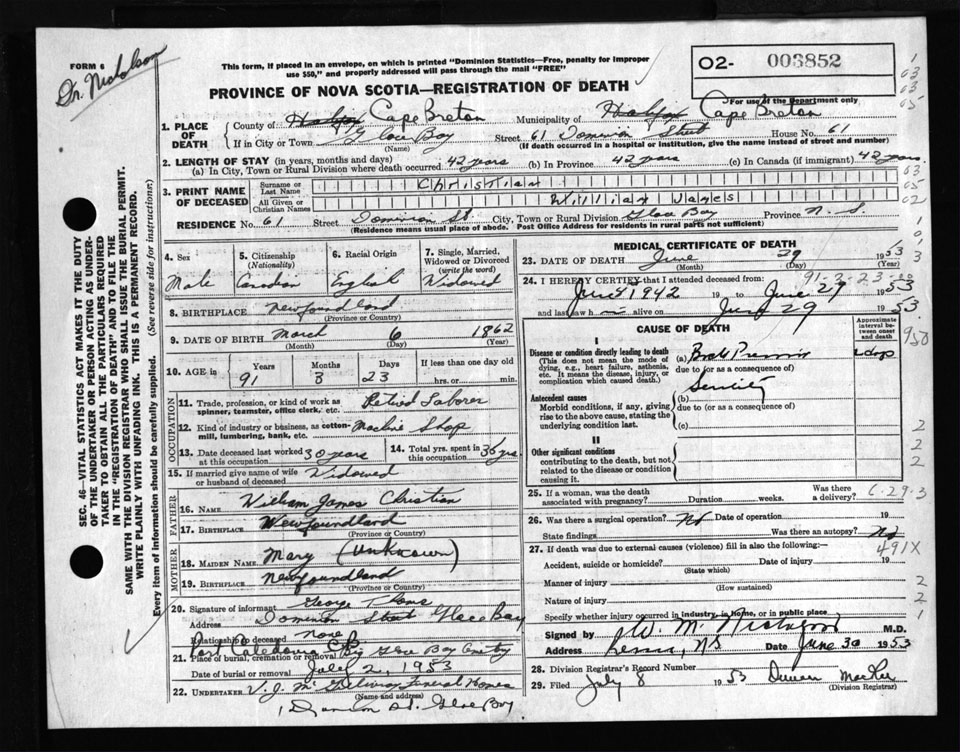 FORM 6
Dr. Nicholson
This form, if placed in an envelope, on which is printed "Dominion Statistics—Free, penalty for improper
use $50," and properly addressed will pass through the mail "FREE"
02- 003852
For use of the Department only
PROVINCE OF NOVA SCOTIA—REGISTRATION OF DEATH
1. PLACE OF DEATH
County of Halifax Cape Breton Municipality of Halifax Cape Breton
If in City or Town Glace Bay Street 61 Dominion Street House No. 61
(Name) (If death occurred in a hospital or institution, give the name instead of street and number)
2. LENGTH OF STAY (in years, months and days)
(a) In City, Town or Rural Division where death occurred 42 years (b) In Province 42 years (c) In Canada (if immigrant) 42 years
3. PRINT NAME OF DECEASED
Surname or Last Name Christian
All Given or Christian Names William James
RESIDENCE No. 61 Street Dominion St. City, Town or Rural Division Glace Bay Province N. S.
(Residence means usual place of abode. Post Office Address for residents in rural parts not sufficient)
4. Sex Male
5. Citizenship (Nationality) Canadian
6. Racial Origin English
7. Single, Married, Widowed or Divorced (write the word) Widowed
8. BIRTHPLACE Newfoundland
(Province or Country)
9. DATE OF BIRTH March 6 1862
(Month) (Day) (Year)
10. AGE in Years 91 Months 3 Days 23 If less than one day old hrs. or min.
OCCUPATION
11. Trade, profession, or kind of work as spinner, teamster, office clerk, etc. Retired Laborer
12. Kind of industry or business, as cotton-mill, lumbering, bank, etc. Machine Shop
13. Date deceased last worked at this occupation 30 years
14. Total yrs. spent in this occupation 35 yrs
15. If married give name of wife or husband of deceased Widowed
FATHER
16. NAME William James Christian
17. BIRTHPLACE Newfoundland
(Province or Country)
MOTHER
18. MAIDEN NAME Mary (Unknown)
19. BIRTHPLACE Newfoundland
(Province or Country)
20. Signature of informant George
Address Dominion Street Glace Bay
Relationship to deceased None
Port Caledonia CB
21. Place of burial, cremation or removal Big Glace Bay Cemetry
Date of burial or removal July 2, 1953
22. UNDERTAKER V. J. Funeral Homes
(Name and address)
Dominion St. Glace Bay
MEDICAL CERTIFICATE OF DEATH
23. DATE OF DEATH June 29 1953
(Month) (Day) (Year)
91-3-23
24. I HEREBY CERTIFY that I attended deceased from:
June 1942 19 to June 29 1953
and last saw h m alive on June 29 1953.
CAUSE OF DEATH
Approximate interval between onset and death
I
Disease or condition directly leading to death
(This does not mean the mode of dying, e.g., heart failure, asthenia, etc. It means the disease, injury, or complication which caused death.)
(a) 2 days
due to (or as a consequence of)
Antecedent causes
Morbid conditions, if any, giving rise to the above cause, stating the underlying condition last.
(b) Senility
due to (or as a consequence of)
(c)
II
Other significant conditions
contributing to the death, but not related to the disease or condition causing it.
25. If a woman, was the death associated with pregnancy? Duration weeks. Was there a delivery?
6-29-3
26. Was there a surgical operation? No Date of operation 19
State findings Was there an autopsy? No
491X
27. If death was due to external causes (violence) fill in also the following:—
Accident, suicide or homicide? Date of injury 19
(State which)
Manner of injury
(How sustained)
Nature of injury
Specify whether injury occurred in industry, in home, or in public place
Signed by W. M. Nicholson M.D.
Address NS Date June 30 1953
28. Division Registrar's Record Number
29. Filed July 8 1953
(Division Registrar)
SEC. 46—VITAL STATISTICS ACT MAKES IT THE DUTY
OF THE UNDERTAKER OR PERSON ACTING AS UNDER-
TAKER TO OBTAIN ALL THE PARTICULARS REQUIRED
IN THE "REGISTRATION OF DEATH" AND TO FILE THE
SAME WITH THE DIVISION REGISTRAR WHO SHALL ISSUE THE BURIAL PERMIT.
WRITE PLAINLY WITH UNFADING INK. THIS IS A PERMANENT RECORD.
Every item of information should be carefully supplied. (See reverse side for instructions.)